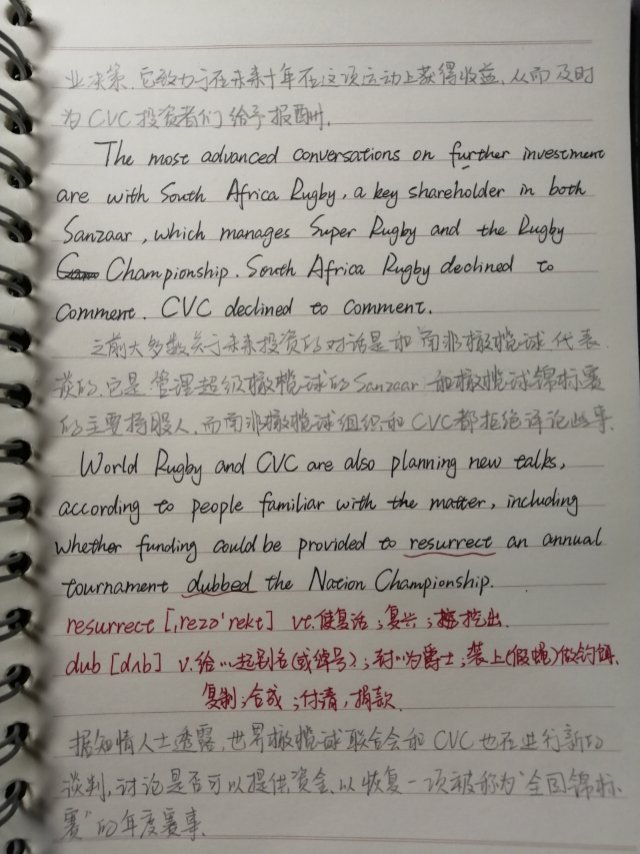 业决策.它致力于在未来十年在这项运动上获得收益,从而及时
为CVC投资者们给予报酬.
The most advanced conversations on further investment
are with South Africa Rugby, a key shareholder in both
Sanzaar, which manages Super Rugby and the Rugby
Championship. South Africa Rugby declined to
comment. CVC declined to comment.
之前大多数关于未来投资的对话是和南非橄榄球代表
谈的.它是管理超级橄榄球的Sanzaar和橄榄球锦标赛
的主要持股人.而南非橄榄球组织和CVC都拒绝评论此事.
World Rugby and CVC are also planning new talks,
according to people familiar with the matter, including
whether funding could be provided to resurrect an annual
tournament dubbed the Nation Championship.
resurrect [ˌrezəˈrekt] vt.使复活;复兴;挖出.
dub [dʌb] v.给…起别名(或绰号);封…为爵士;装上(假蝇)做钓饵.
复制;合成;付清,捐款.
据知情人士透露,世界橄榄球联合会和CVC也在进行新的
谈判,讨论是否可以提供资金.以恢复一项被称为"全国锦标
赛"的年度赛事.